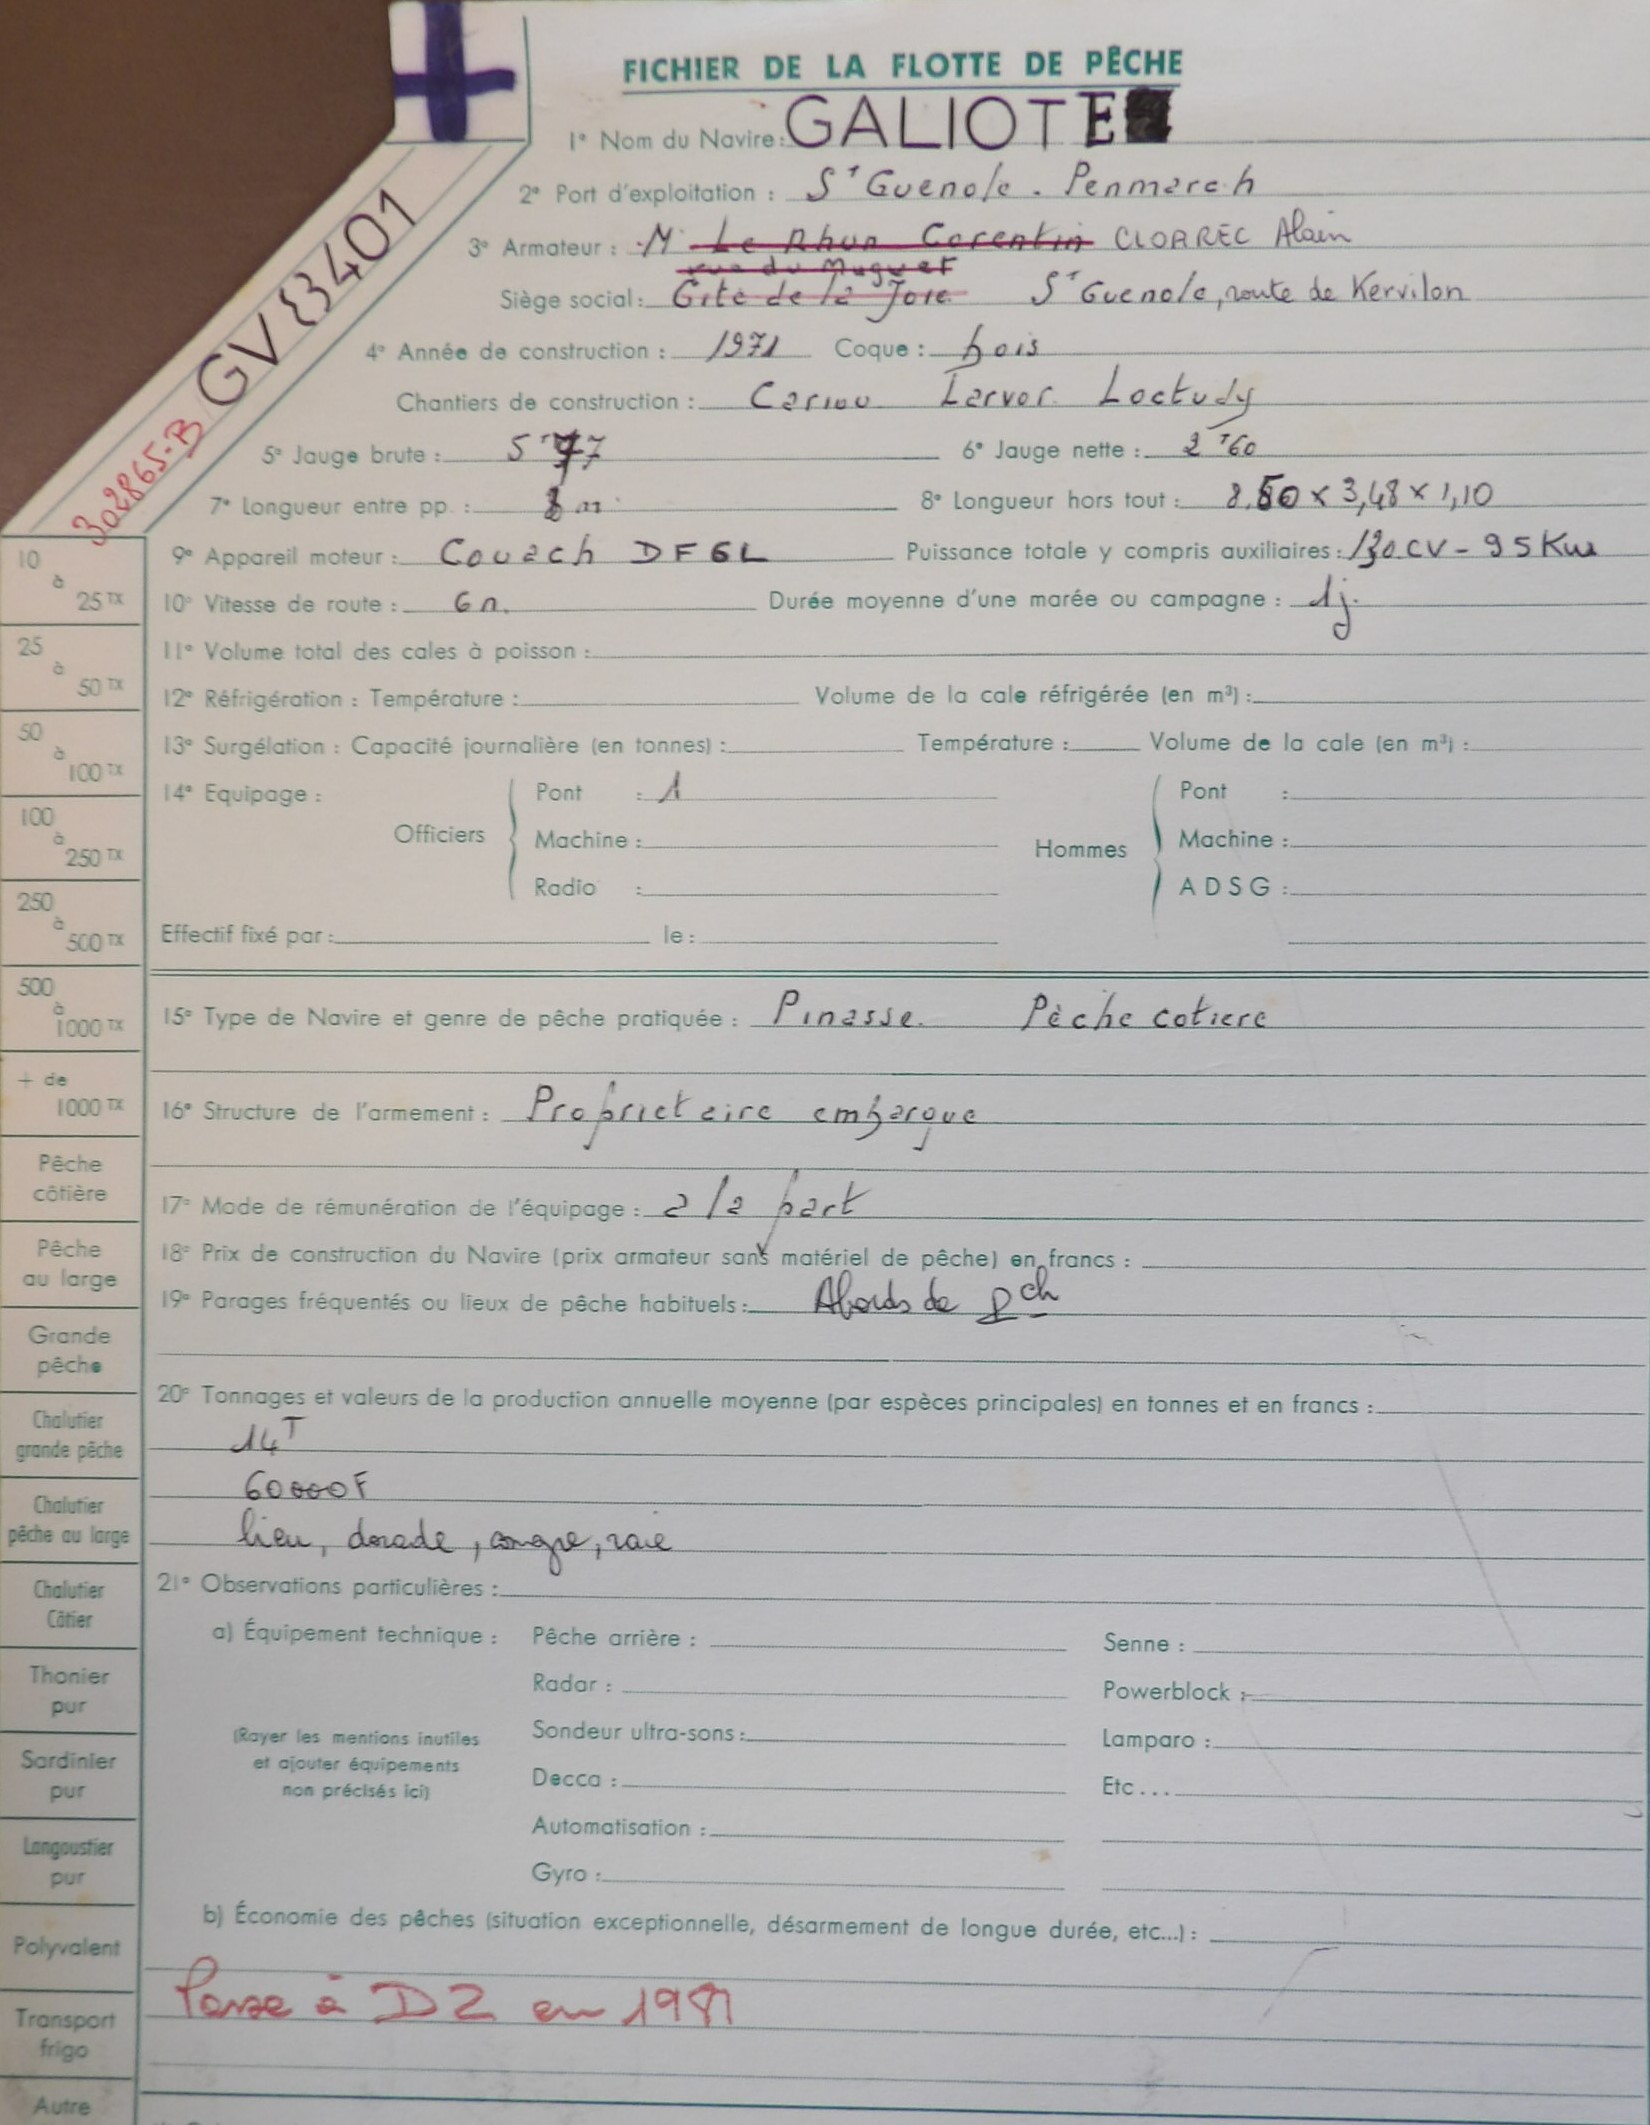 FICHIER DE LA FLOTTE DE PÊCHE
1° Nom du Navire : GALIOTE
2° Port d'exploitation : St Guenole. Penmarch
3° Armateur : M. Le Rhun Corentin CLOAREC Alain
rue du Muguet
Siège social : Cité de la Joie. St Guenole, route de Kervilon
GV 3401
302865-B
4° Année de construction : 1971 Coque : bois
Chantiers de construction : Cariou Larvor. Loctudy
5° Jauge brute : 5T77 6° Jauge nette : 2T60
7° Longueur entre pp. : 8 m 8° Longueur hors tout : 8,50 x 3,48 x 1,10
9° Appareil moteur : Couach DF6L Puissance totale y compris auxiliaires : 130 CV - 95 Kw
10° Vitesse de route : 6 n. Durée moyenne d'une marée ou campagne : 1 j.
11° Volume total des cales à poisson :
12° Réfrigération : Température : Volume de la cale réfrigérée (en m³) :
13° Surgélation : Capacité journalière (en tonnes) : Température : Volume de la cale (en m³) :
14° Equipage :
Officiers
Pont : 1
Machine :
Radio :
Hommes
Pont :
Machine :
A D S G :
Effectif fixé par : le :
15° Type de Navire et genre de pêche pratiquée : Pinasse. Pèche cotiere
16° Structure de l'armement : Proprietaire embarque
17° Mode de rémunération de l'équipage : a la part
18° Prix de construction du Navire (prix armateur sans matériel de pêche) en francs :
19° Parages fréquentés ou lieux de pêche habituels : Abords de Pch
20° Tonnages et valeurs de la production annuelle moyenne (par espèces principales) en tonnes et en francs :
14T
60000F
lieu, dorade, congre, raie
21° Observations particulières :
a) Équipement technique :
(Rayer les mentions inutiles
et ajouter équipements
non précisés ici)
Pêche arrière :
Radar :
Sondeur ultra-sons :
Decca :
Automatisation :
Gyro :
Senne :
Powerblock :
Lamparo :
Etc...
b) Économie des pêches (situation exceptionnelle, désarmement de longue durée, etc...) :
Passe à DZ en 1981
10
à
25 TX
25
à
50 TX
50
à
100 TX
100
à
250 TX
250
à
500 TX
500
à
1000 TX
+ de
1000 TX
Pêche
côtière
Pêche
au large
Grande
pêche
Chalutier
grande pêche
Chalutier
pêche au large
Chalutier
Côtier
Thonier
pur
Sardinier
pur
Langoustier
pur
Polyvalent
Transport
frigo
Autre